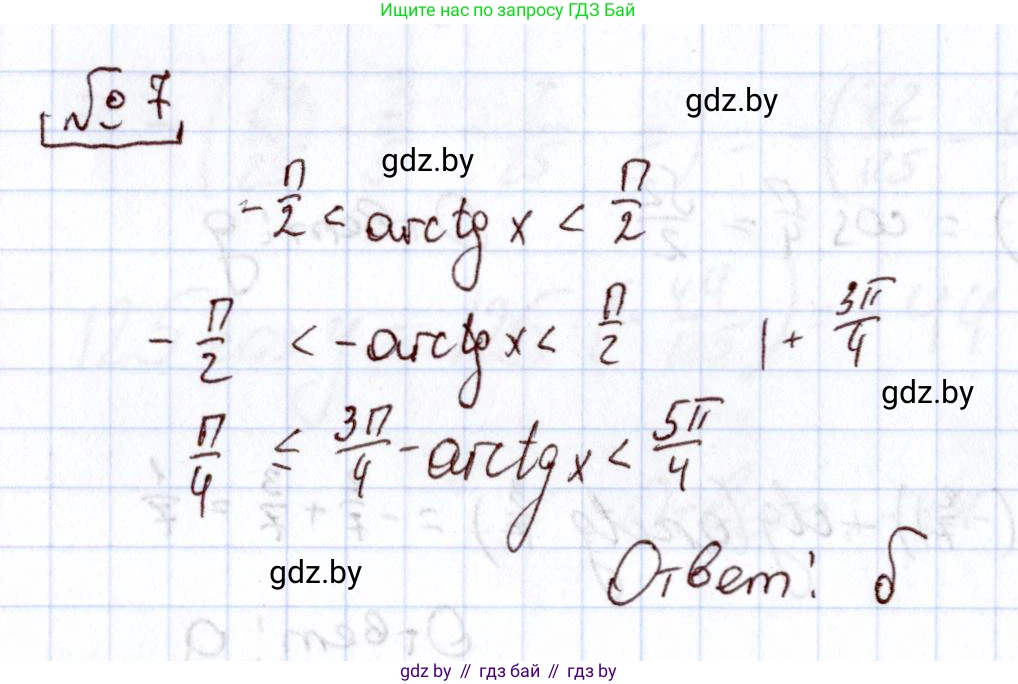 Ищите нас по запросу ГДЗ Бай
№ 7
gdz.by
gdz.by
-π/2 < arctg x < π/2
-π/2 < -arctg x < π/2 | + 3π/4
gdz.by
π/4 ≤ 3π/4 - arctg x < 5π/4
gdz.by
Ответ: б
gdz by // гдз бай // гдз by